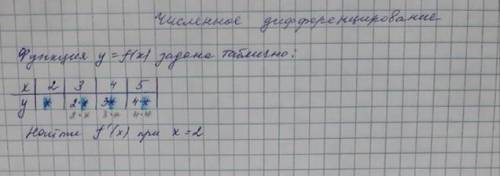 Численное дифференцирование
Функция y = f(x) задана таблично:
x 2 3 4 5
y x 2·x 3x 4·x
2·x 3·x 4·x
Найти f'(x) при x = 2